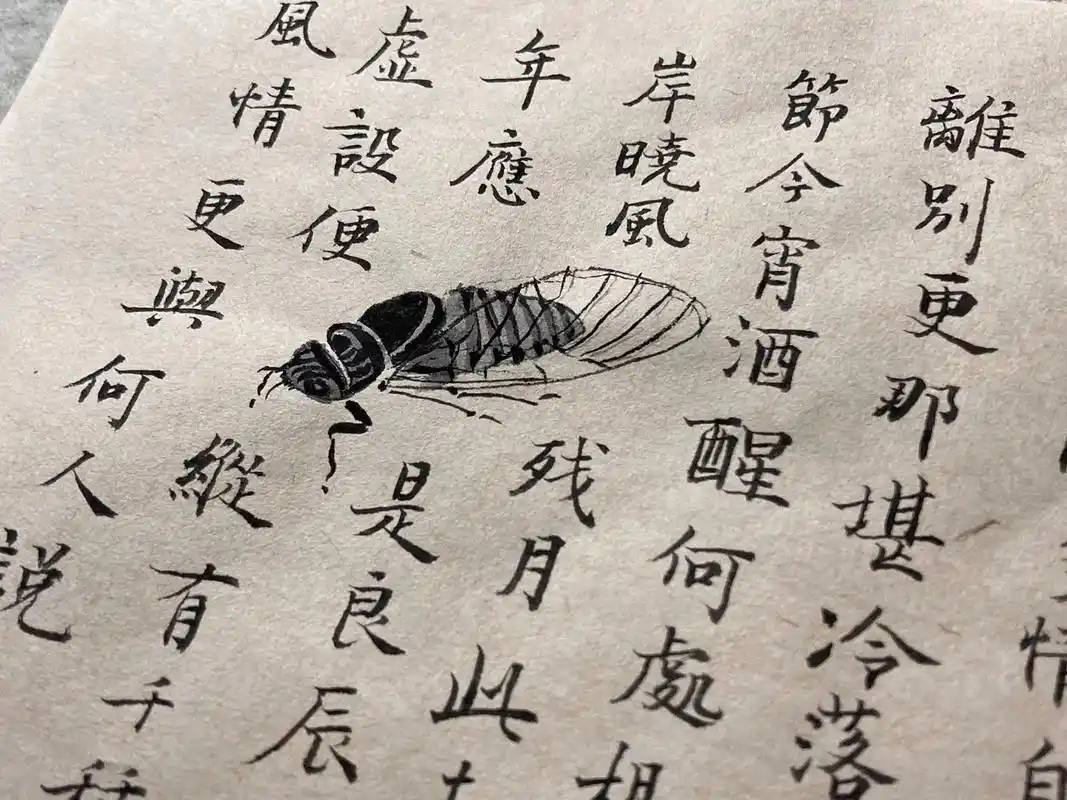 情自
離別更那堪冷落
節今宵酒醒何處
岸曉風残月此
年應是良辰
虛設便縱有千
風情更與何人説